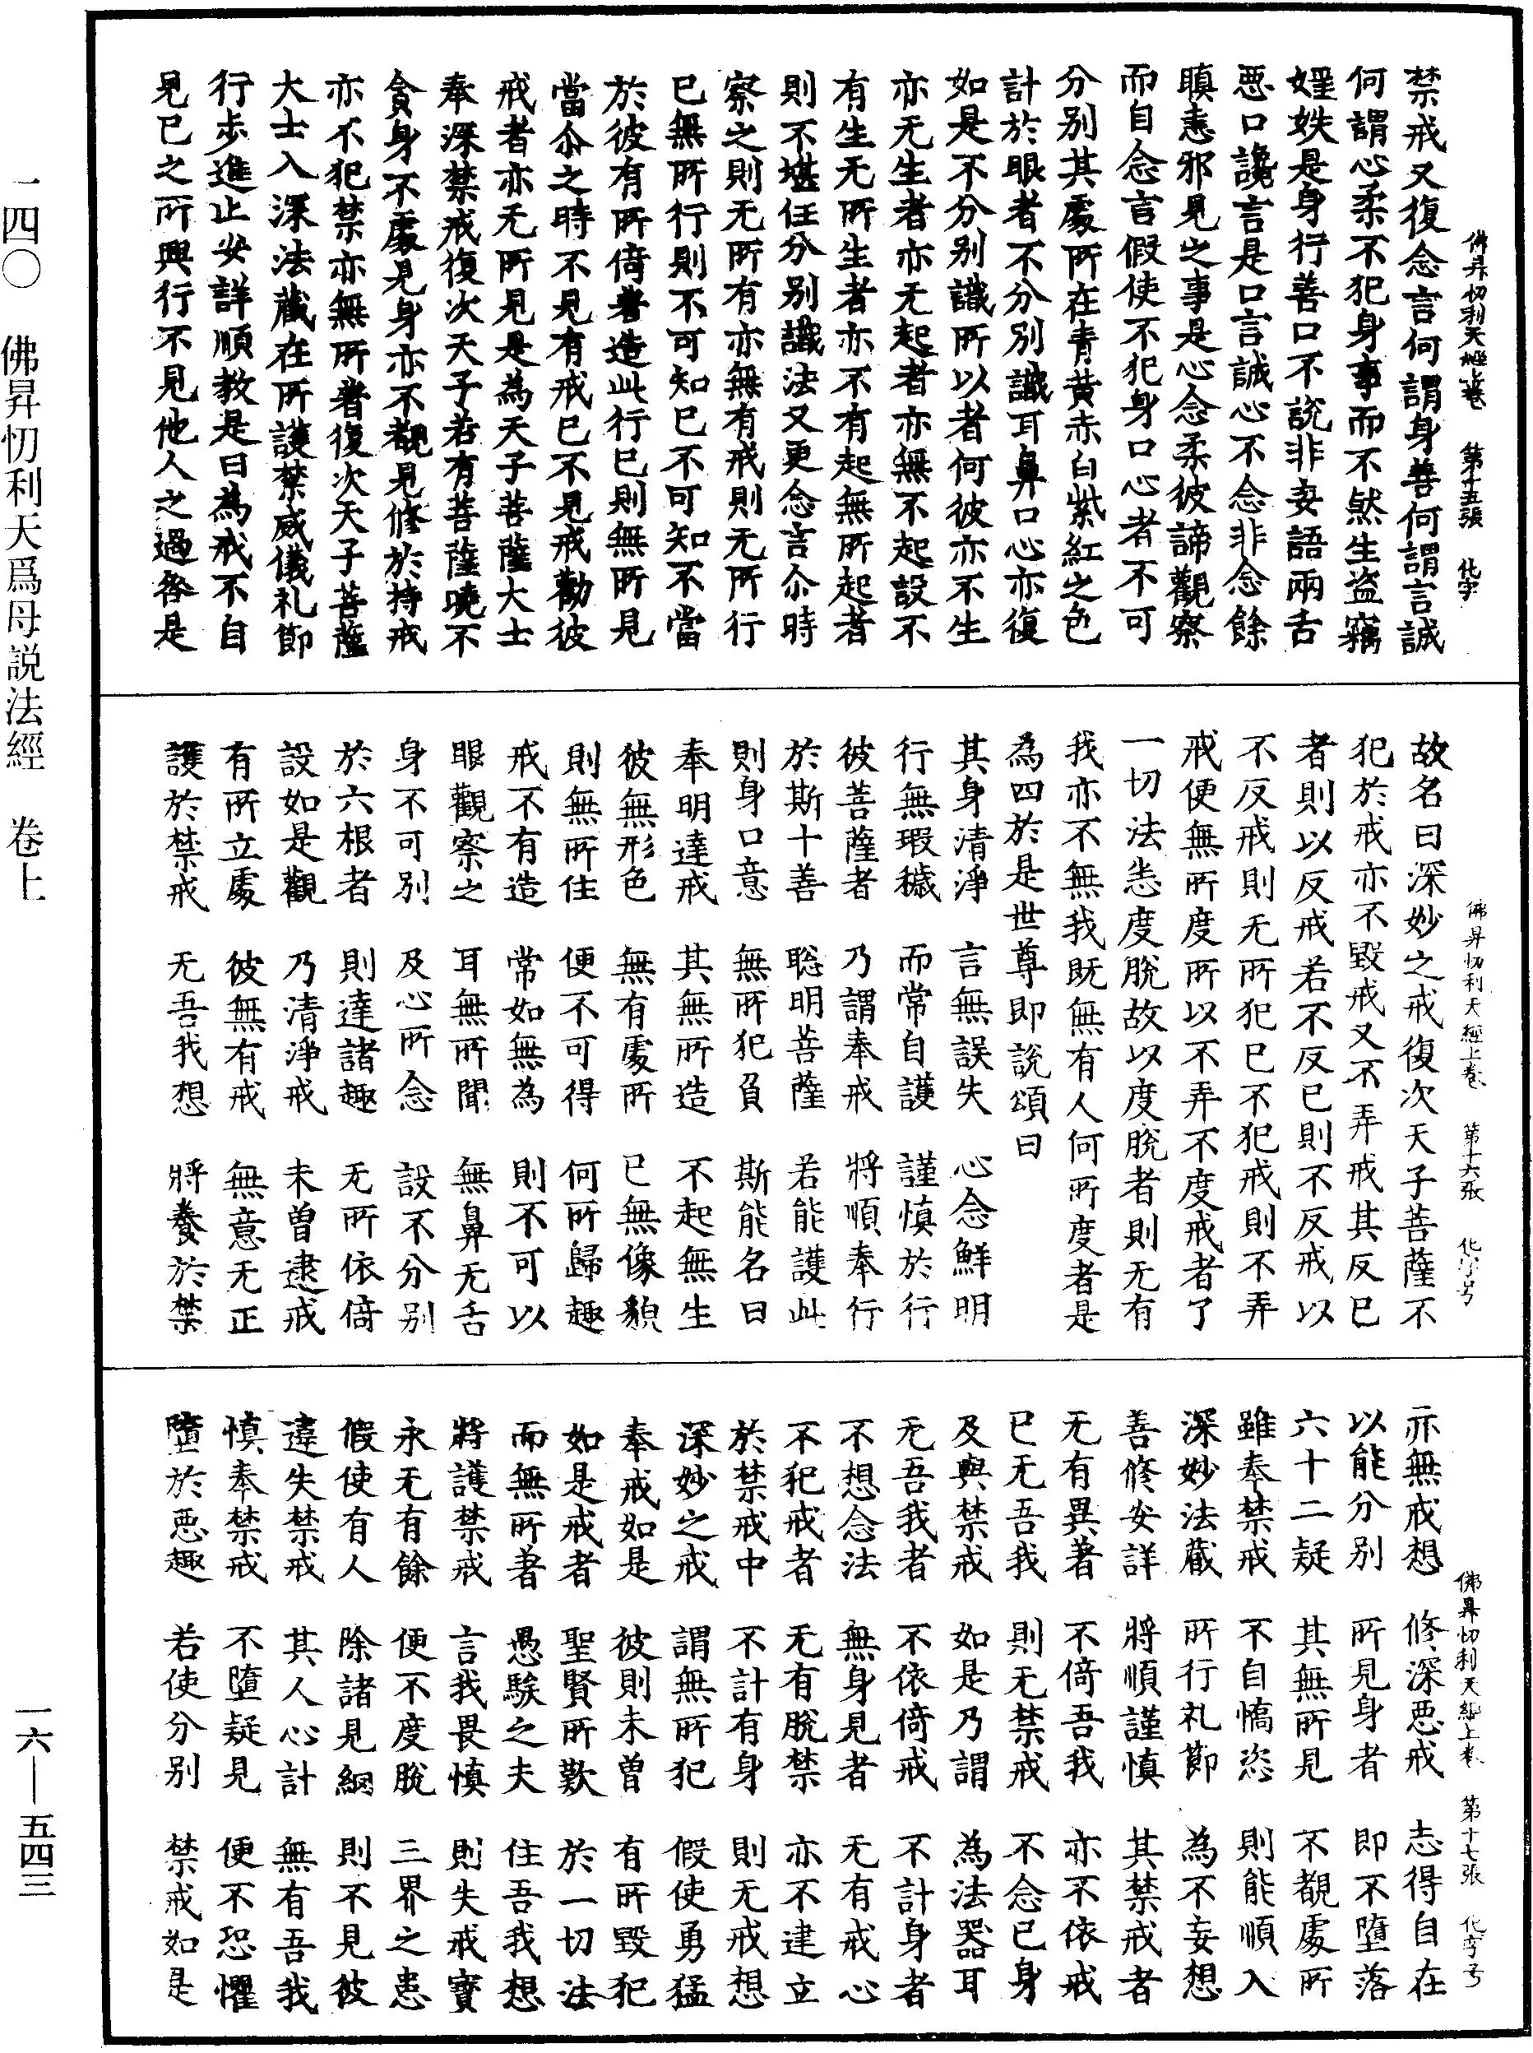 佛昇忉利天經上卷 第十五張 化字
禁戒又復念言何謂身善何謂言誠
何謂心柔不犯身事而不煞生盜竊
婬妷是身行善口不說非妄語兩舌
惡口讒言是口言誠心不念非念餘
瞋恚邪見之事是心念柔彼諦觀察
而自念言假使不犯身口心者不可
分別其處所在青黃赤白紫紅之色
計於眼者不分別識耳鼻口心亦復
如是不分別識所以者何彼亦不生
亦无生者亦无起者亦無不起設不
有生无所生者亦不有起無所起者
則不堪任分別識法又更念言尒時
察之則无所有亦無有戒則无所行
已無所行則不可知已不可知不當
於彼有所倚著造此行已則無所見
當尒之時不見有戒已不見戒勸彼
戒者亦无所見是為天子菩薩大士
奉深禁戒復次天子若有菩薩曉不
貪身不處見身亦不觀見修於持戒
亦不犯禁亦無所著復次天子菩薩
大士入深法藏在所護禁威儀礼節
行步進止安詳順教是曰為戒不自
見已之所興行不見他人之過咎是
佛昇忉利天經上卷 第十六張 化字号
故名曰深妙之戒復次天子菩薩不
犯於戒亦不毀戒又不弄戒其反已
者則以反戒若不反已則不反戒以
不反戒則无所犯已不犯戒則不弄
戒便無所度所以不弄不度戒者了
一切法恙度脫故以度脫者則无有
我亦不無我既無有人何所度者是
為四於是世尊即說頌曰
其身清淨 言無誤失 心念鮮明
行無瑕穢 而常自護 謹慎於行
彼菩薩者 乃謂奉戒 將順奉行
於斯十善 聡明菩薩 若能護此
則身口意 無所犯負 斯能名曰
奉明達戒 其無所造 不起無生
彼無形色 無有處所 已無像貌
則無所住 便不可得 何所歸趣
戒不有造 常如無為 則不可以
眼觀察之 耳無所聞 無鼻无舌
身不可別 及心所念 設不分別
於六根者 則達諸趣 无所依倚
設如是觀 乃清淨戒 未曾逮戒
有所立處 彼無有戒 無意无正
護於禁戒 无吾我想 將養於禁
佛昇忉利天經上卷 第十七張 化字号
亦無戒想 修深惡戒 志得自在
以能分別 所見身者 即不墮落
六十二疑 其無所見 不覩處所
雖奉禁戒 不自憍恣 則能順入
深妙法藏 所行礼節 為不妄想
善修安詳 將順謹慎 其禁戒者
无有異著 不倚吾我 亦不依戒
已无吾我 則无禁戒 不念已身
及與禁戒 如是乃謂 為法器耳
无吾我者 不依倚戒 不計身者
不想念法 無身見者 无有戒心
不犯戒者 无有脫禁 亦不建立
於禁戒中 不計有身 則无戒想
深妙之戒 謂無所犯 假使勇猛
奉戒如是 彼則未曾 有所毀犯
如是戒者 聖賢所歎 於一切法
而無所著 愚騃之夫 住吾我想
將護禁戒 言我畏慎 則失戒寶
永无有餘 便不度脫 三界之患
假使有人 除諸見網 則不見彼
違失禁戒 其人心計 無有吾我
慎奉禁戒 不墮疑見 便不恐懼
墮於惡趣 若使分別 禁戒如是
一四〇 佛昇忉利天爲母説法經 卷上
一六—五四三